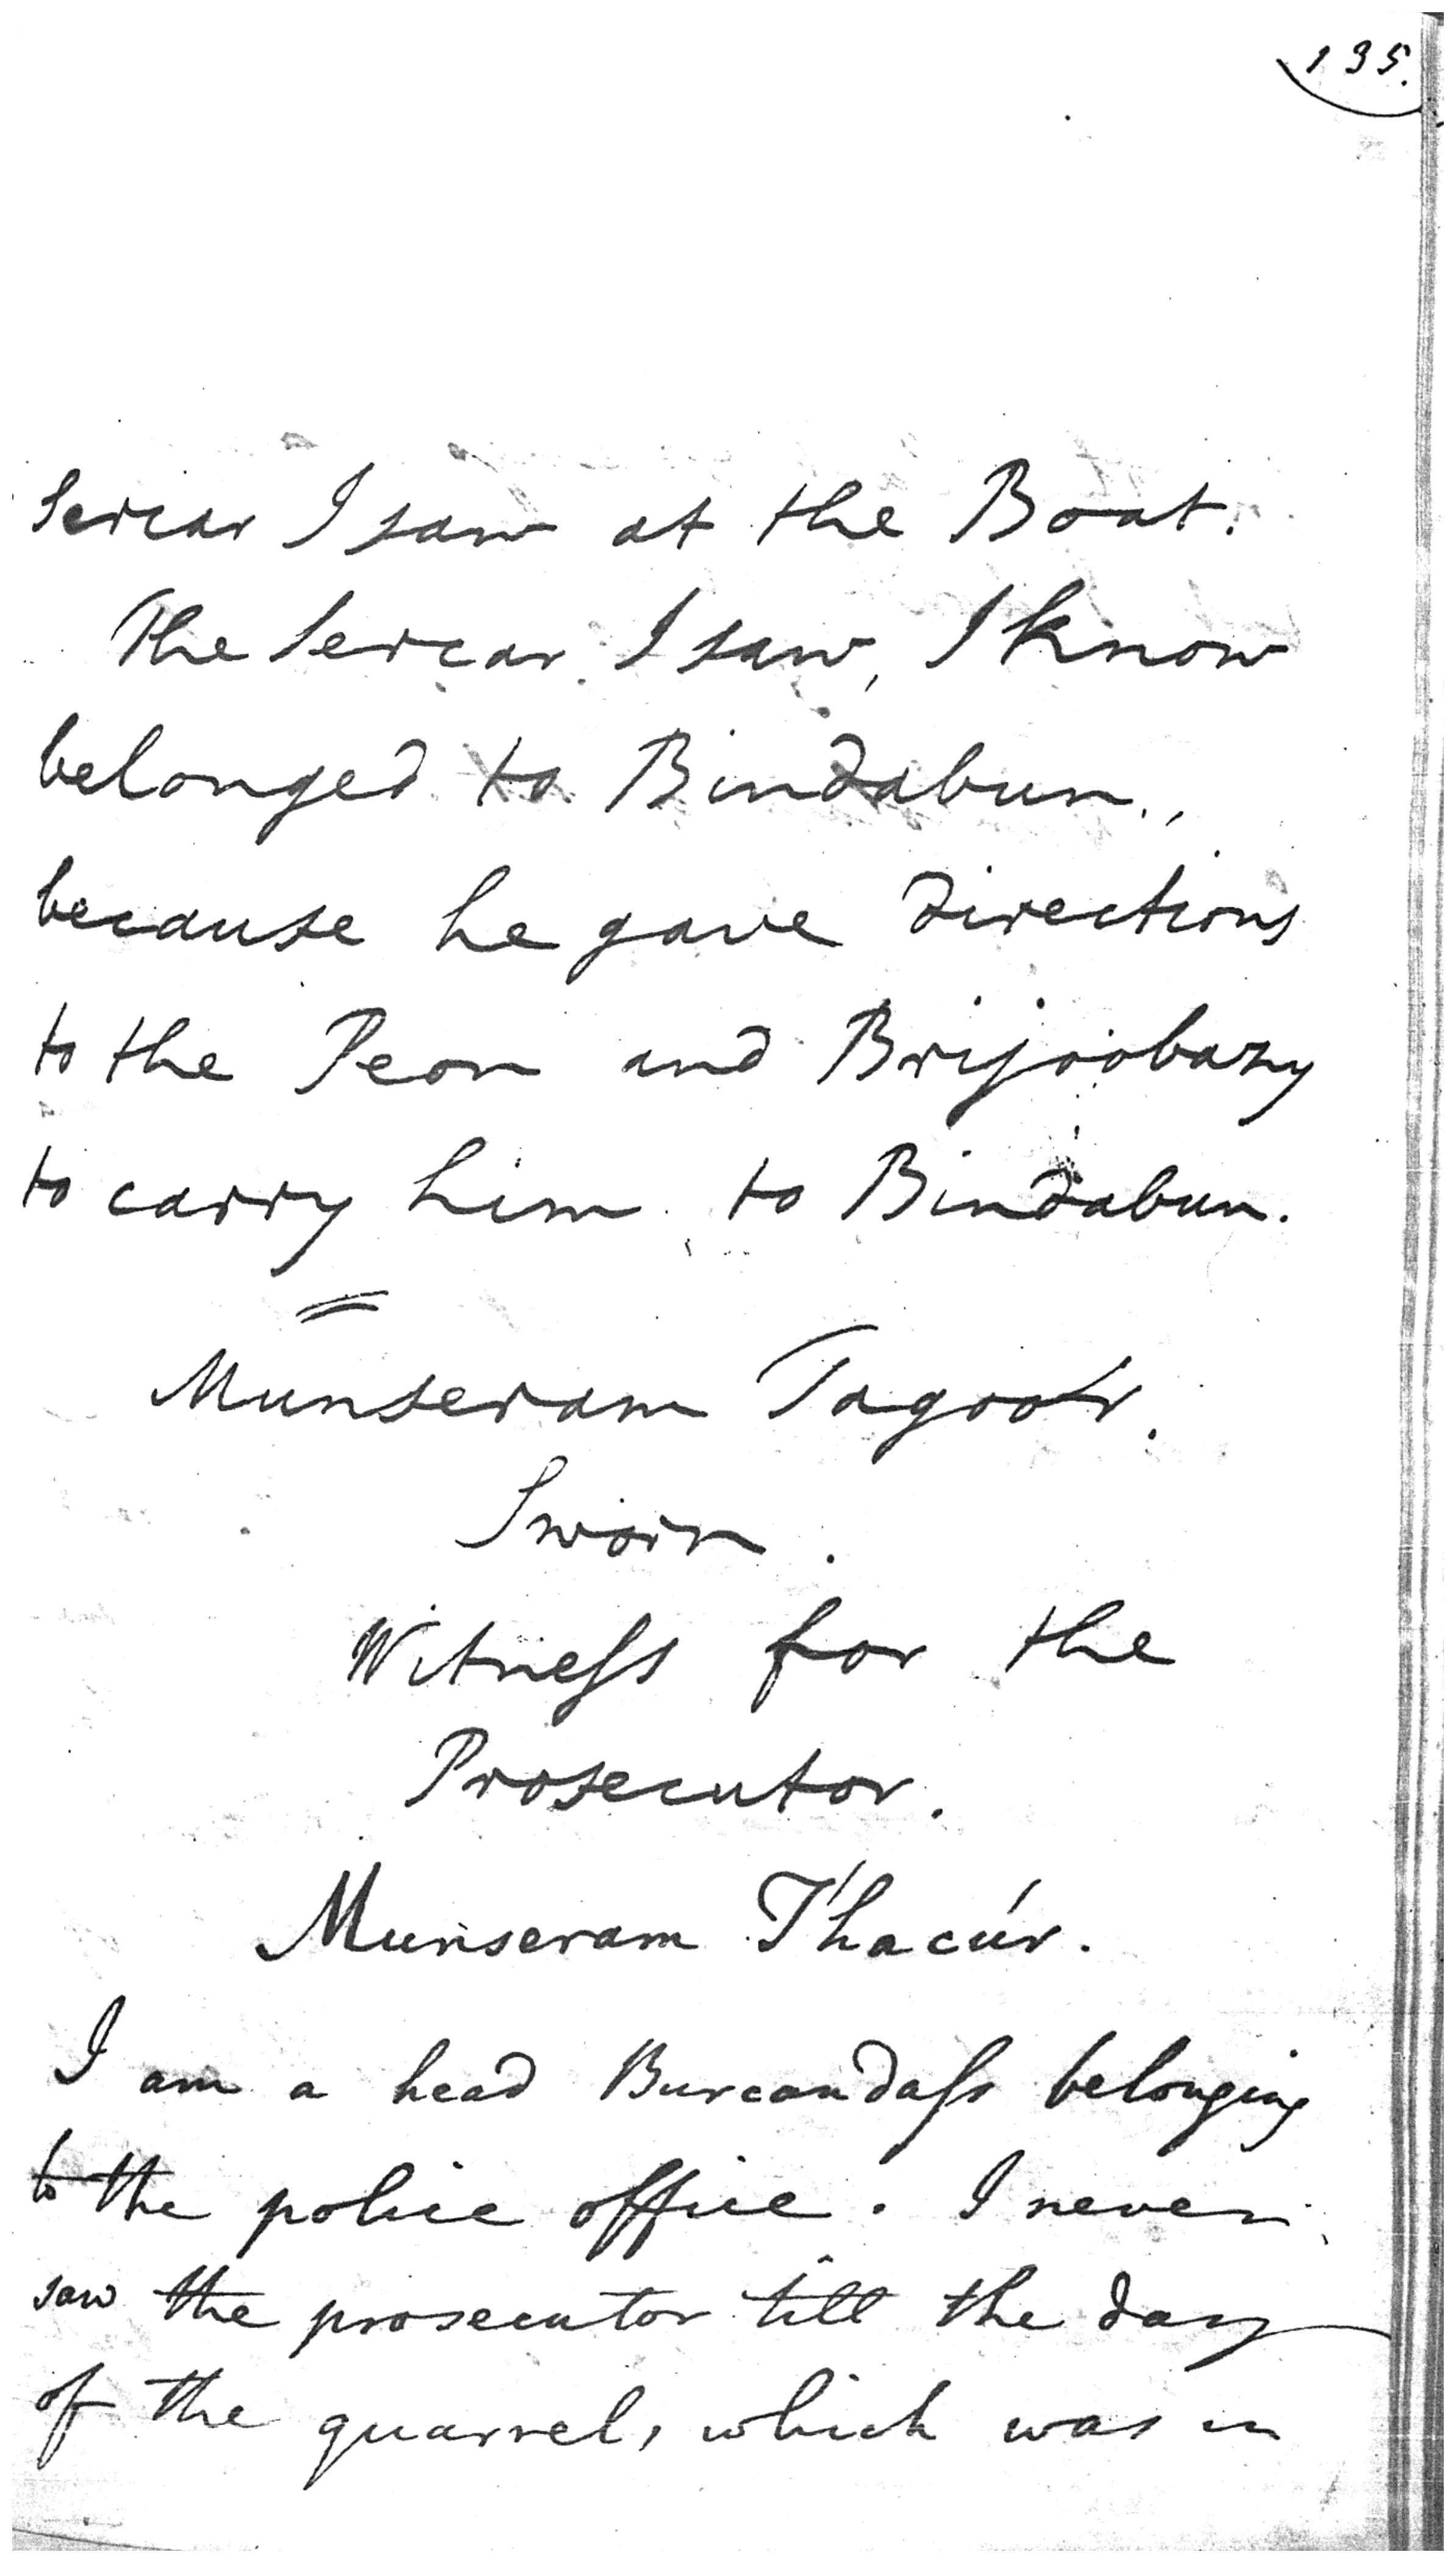 135.
Sercar I saw at the Boat.
The Sercar I saw, I know
belonged to Bindabun,
because he gave directions
to the Peon and Brijoobazy
to carry him to Bindabun.
Munseram Tagoor.
Sworn.
Witneſs for the
Prosecutor.
Munseram T'hacúr.
I am a head Burcandaſs belonging
to the police office. I never
saw the prosecutor till the day
of the quarrel, which was in